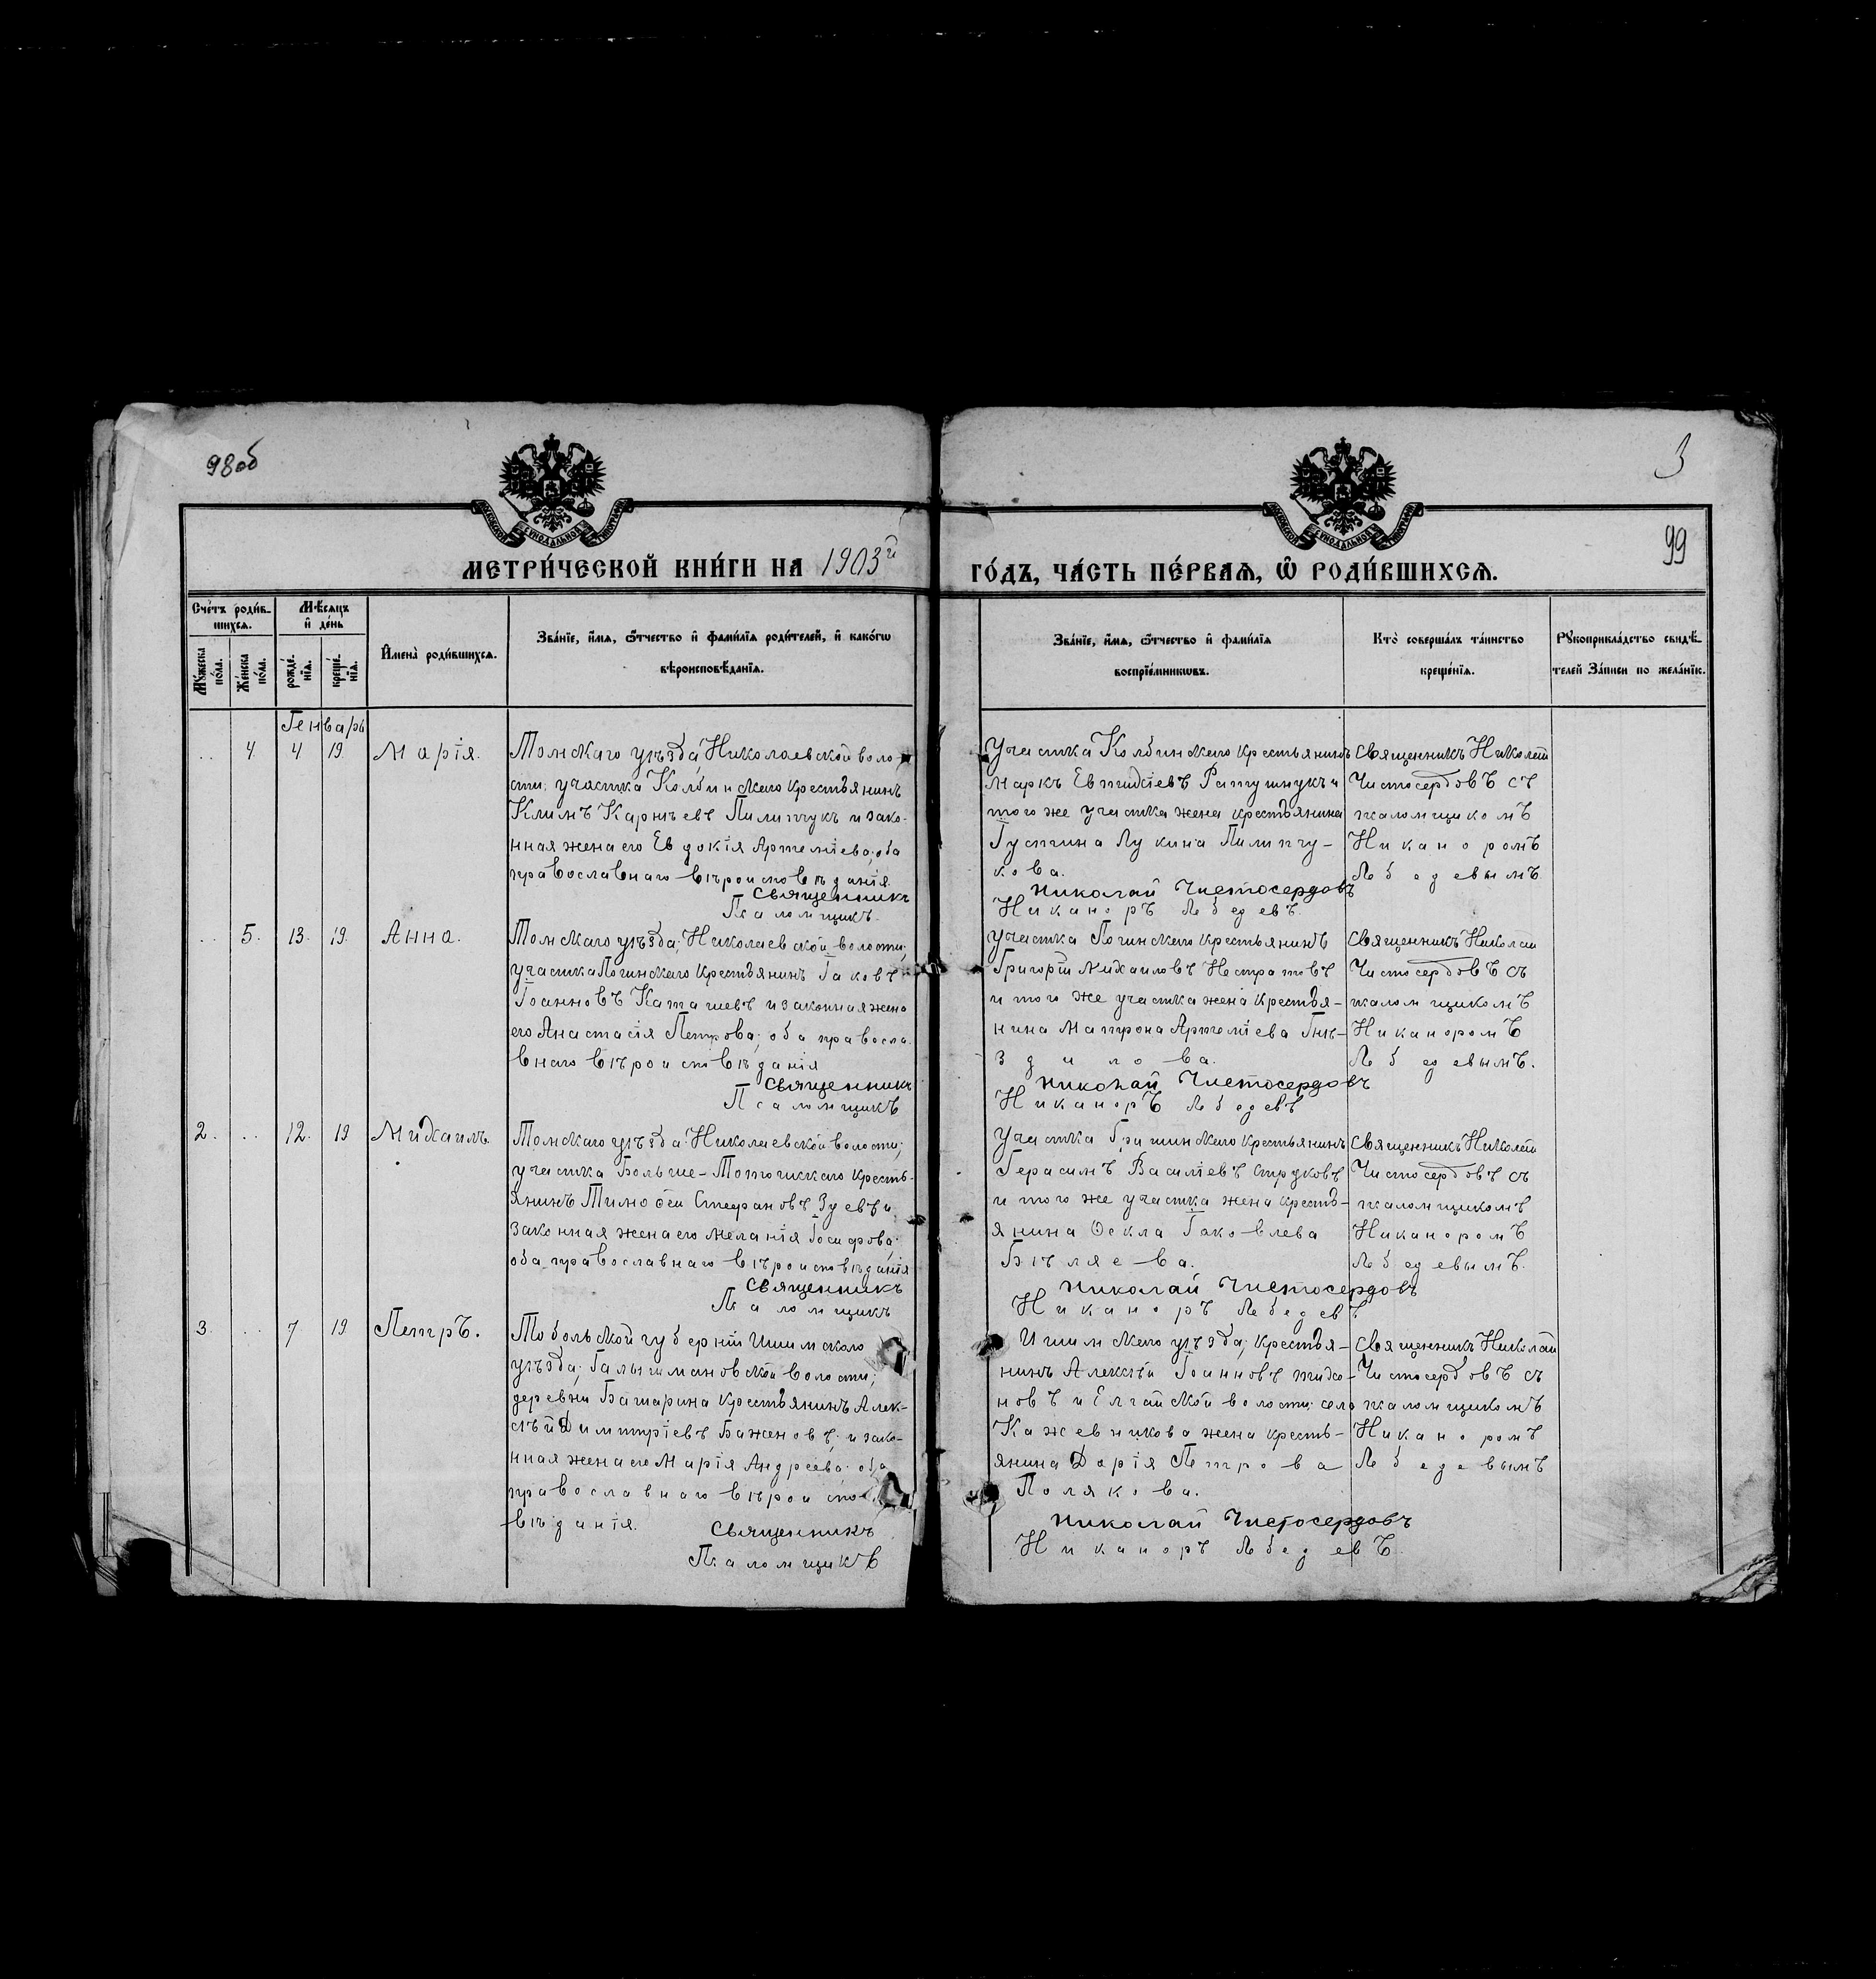 98об
3
99
МЕТРИ́ЧЕСКОЙ КНИ́ГИ НА 1903й
ГО́ДЪ, ЧА́СТЬ ПЕ́РВАѦ, Ѡ҆ РОДИ́ВШИХСѦ.
Сче́тъ роди́в-
шихсѧ.
Мѣ́сѧцъ
и҆ де́нь
Мꙋ́жеска
по́ла.
Же́нска
по́ла.
рожде́-
нїѧ.
креще́-
нїѧ.
И҆мена̀ роди́вшихсѧ.
Зва́нїе, и҆́мѧ, ѻ҆́тчество и҆ фами́лїѧ роди́телей, и҆ како́гѡ
вѣроисповѣ́данїѧ.
Зва́нїе, и҆́мѧ, ѻ҆́тчество и҆ фами́лїѧ
воспрїе́мникѡвъ.
Кто̀ соверша́лъ та́инство
креще́нїѧ.
Рꙋкоприкла́дство свидѣ́-
телей За́писи по жела́нїю.
Генварь
.. 4. 4 19. Марія.
Томскаго уѣзда, Николаевской воло-
сти; участка Колбинскаго крестьянинъ
Климъ Карпѣевъ Пилипчукъ и зако-
нная жена его Евдокія Артеміева, оба
православнаго вѣроисповѣданія.
Священникъ
Псаломщикъ.
Участка Колбинскаго крестьянинъ
Маркъ Евтихіевъ Рапушнукъ и
того же участка жена крестьянина
Густина Лукина Пилипчу-
кова.
Николай Чистосердовъ
Никаноръ Лебедевъ.
Священникъ Николай
Чистосердовъ съ
псаломщикомъ
Никаноромъ
Лебедевымъ.
.. 5. 13. 19. Анна.
Томскаго уѣзда; Николаевской волости;
участка Логинскаго крестьянинъ Іаковъ
Іоанновъ Каташевъ и законная жена
его Анастасія Петрова; оба правосла-
внаго вѣроисповѣданія
Священникъ
Псаломщикъ
участка Логинскаго крестьянинъ
Григорій Михаиловъ Нестратовъ
и того же участка жена крестья-
нина Матрона Артеміева Гнѣ-
здилова.
Николай Чистосердовъ
Никаноръ Лебедевъ
Священникъ Николай
Чистосердовъ съ
псаломщикомъ
Никаноромъ
Лебедевымъ.
2. .. 12. 19 Михаилъ.
Томскаго уѣзда Николаевской волости;
участка Больше-Тоточискаго кресть-
янинъ Тимоѳеи Стефановъ Зуевъ и
законная жена его Меланія Іосифова;
оба православнаго вѣроисповѣданія
Священникъ
Псаломщикъ
Участка крестьянинъ
Герасимъ Василіевъ Струковъ
и того же участка жена кресть-
янина Ѳекла Іаковлева
Бѣляева.
Николай Чистосердовъ
Никаноръ Лебедевъ
Священникъ Николай
Чистосердовъ съ
псаломщикомъ
Никаноромъ
Лебедевымъ.
3. .. 7 19 Петръ.
Тобольской губерніи Ишимскаго
уѣзда; Галышмановской волости;
деревни Батарина крестьянинъ Алек-
сѣй Димитріевъ Баженовъ; и зако-
нная жена его Марія Андреева; оба
православнаго вѣроиспо-
вѣданія.
Священникъ
Псаломщикъ
Ишимскаго уѣзда, крестья-
нинъ Алексѣй Іоанновъ Тихо-
новъ и Елгайской волости; села
Кажевникова жена кресть-
янина Дарія Петрова
Полякова.
Николай Чистосердовъ
Никаноръ Лебедевъ.
Священникъ Николай
Чистосердовъ съ
псаломщикомъ
Никаноромъ
Лебедевымъ